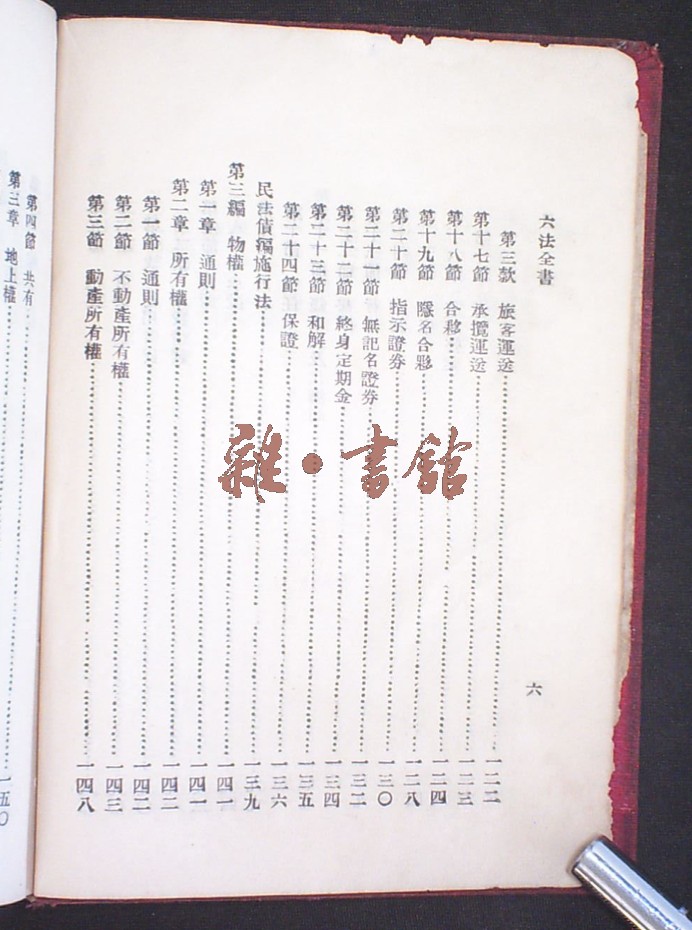 六法全書
六
第三款 旅客運送 一二二
第十七節 承攬運送 一二三
第十八節 合夥 一二四
第十九節 隱名合夥 一二八
第二十節 指示證券 一三〇
第二十一節 無記名證券 一三二
第二十二節 終身定期金 一三四
第二十三節 和解 一三五
第二十四節 保證 一三六
民法債編施行法 一三九
第三編 物權 一四一
第一章 通則 一四一
第二章 所有權 一四二
第一節 通則 一四二
第二節 不動產所有權 一四三
第三節 動產所有權 一四八
第四節 共有
第三章 地上權 一五〇
雜·書館